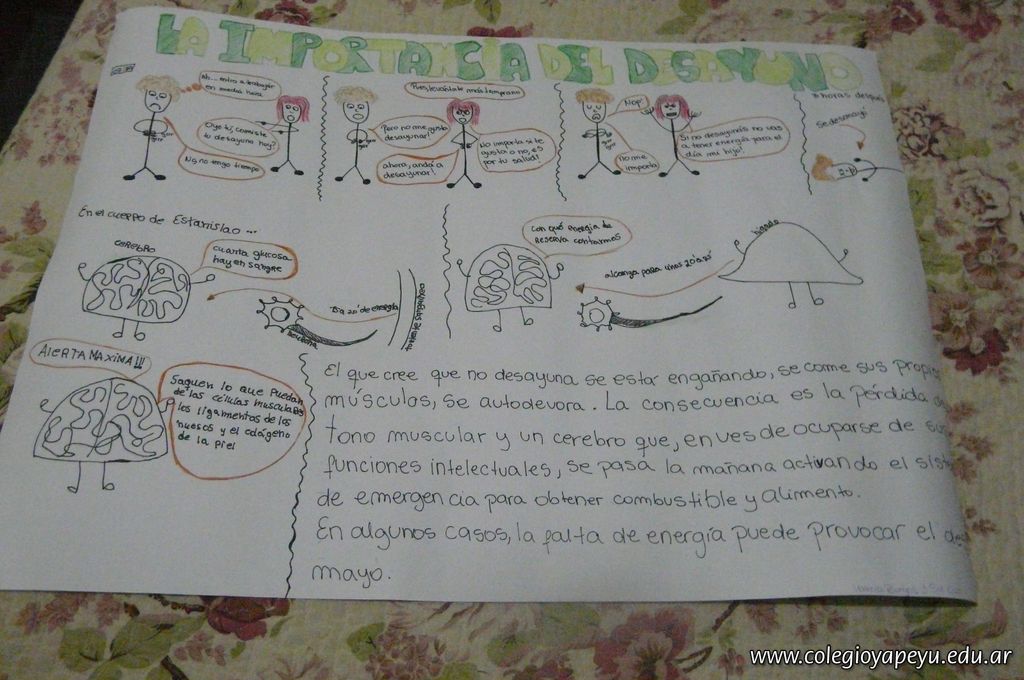 LA IMPORTANCIA DEL DESAYUNO
Ah... entro a trabajar
en media hora
Oye tú, comiste
tu desayuno hoy?
No, no tengo tiempo
Pues, levántate más temprano
Pero no me gusta
desayunar!
No importa si te
gusta o no, es
por tu salud!
ahora, andá a
desayunar!
Nop!
No me
importa
Si no desayunás no vas
a tener energía para el
día mi hijo!
horas después
Se desmayó
En el cuerpo de Estanislao...
CEREBRO
cuanta glucosa
hay en sangre
de energía
neurona
con qué energía de
reserva contamos
alcanza para unos
hígado
AlERTA MAXIMA!!!
Saquen lo que puedan
de las células musculares
los ligamentos de los
huesos y el colágeno
de la piel
El que cree que no desayuna se estar engañando, se come sus propi
músculos, se autodevora. La consecuencia es la pérdida
tono muscular y un cerebro que, en ves de ocuparse de su
funciones intelectuales, se pasa la mañana activando el sist
de emergencia para obtener combustible y alimento.
En algunos casos, la falta de energía puede provocar el des
mayo.
www.colegioyapeyu.edu.ar